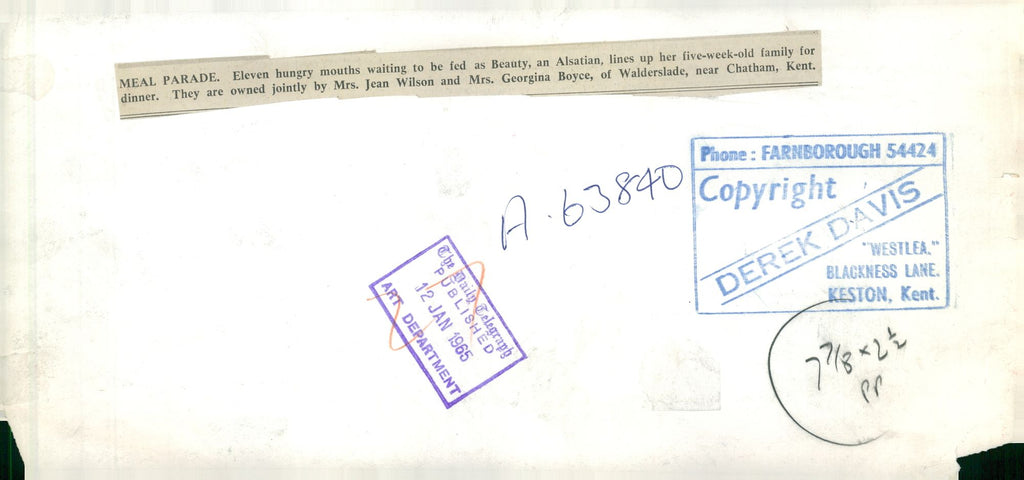 MEAL PARADE. Eleven hungry mouths waiting to be fed as Beauty, an Alsatian, lines up her five-week-old family for
dinner. They are owned jointly by Mrs. Jean Wilson and Mrs. Georgina Boyce, of Walderslade, near Chatham, Kent.
Phone : FARNBOROUGH 54424
Copyright
DEREK DAVIS
"WESTLEA."
BLACKNESS LANE.
KESTON, Kent.
A.63840
The Daily Telegraph
PUBLISHED
12 JAN 1965
ART DEPARTMENT
7 7/8 × 2 ½
PP